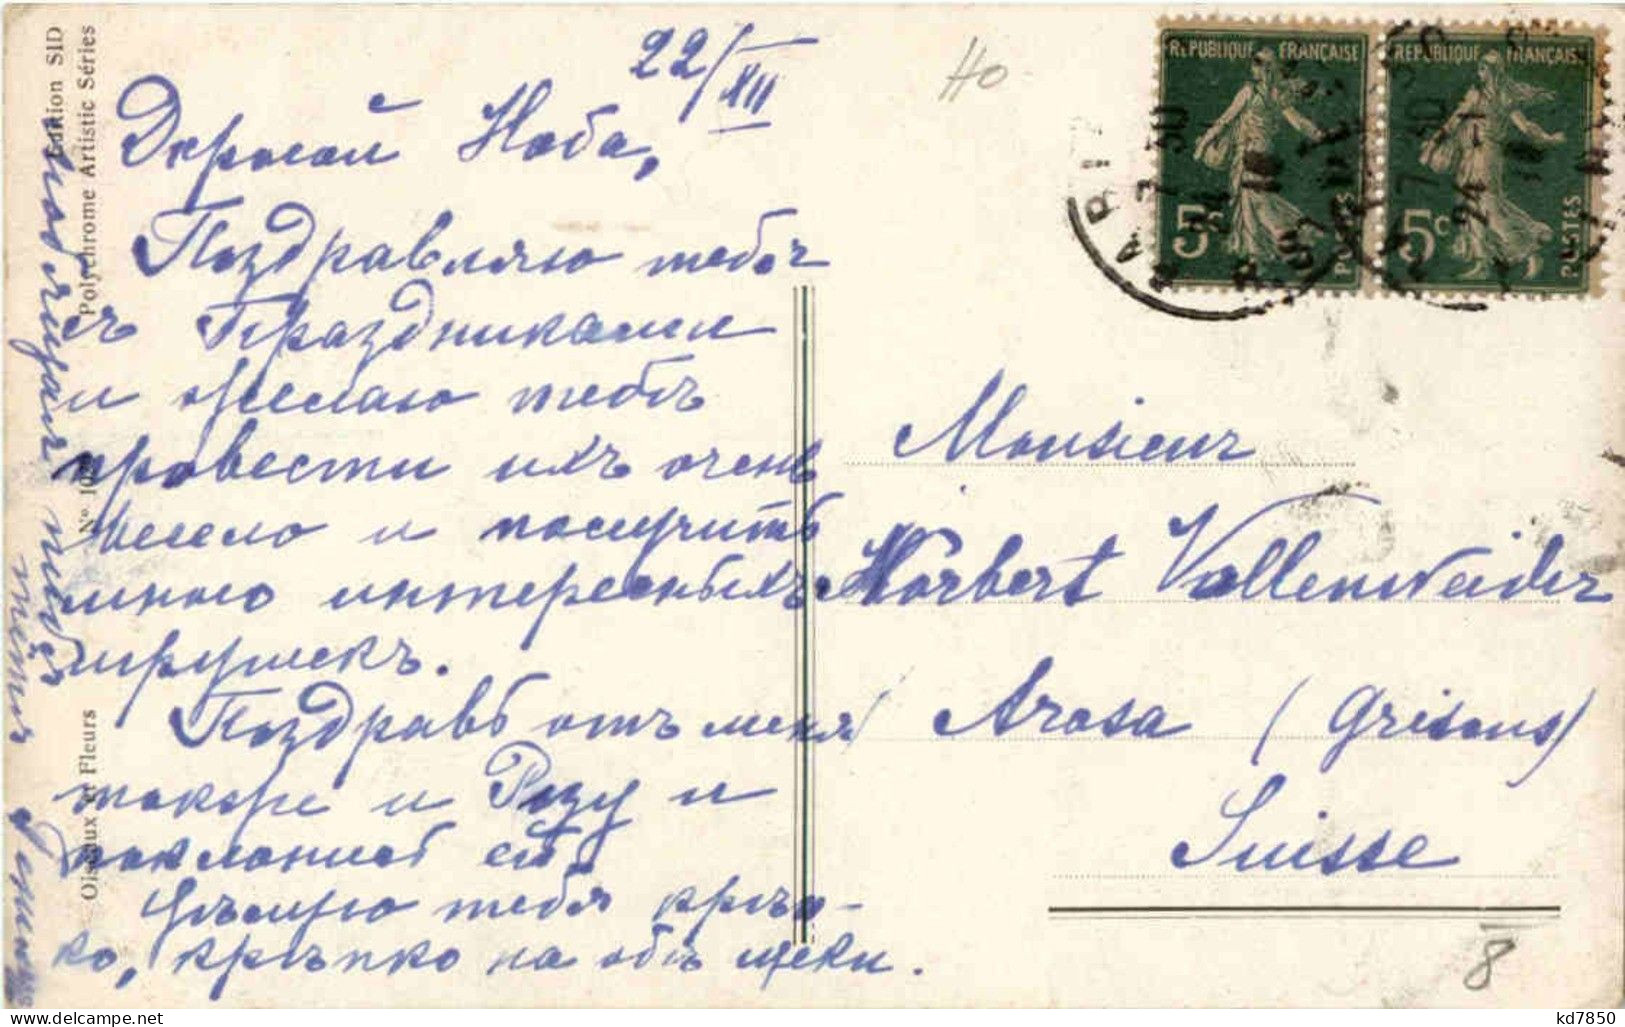 22/XII
ДорогойНоба,
Поздравляю тебя
съ Праздниками
и желаю тебѣ
провести ихъ очень
весело и получить
много интересныхъ
игрушекъ.
Поздравь отъ меня
также и Розу и
поклонись ей.
Цѣлую тебя крѣп-
ко, крѣпко на обѣ щеки.
тебя
тетя
Edition SID
Polychrome Artistic Séries
Nº
Oiseaux et Fleurs
REPUBLIQUE FRANÇAISE
5c
POSTES
REPUBLIQUE FRANÇAISE
5c
POSTES
PARI
7 30
24
Monsieur
Norbert Vollenweider
Arosa (Grisons)
Suisse
8
kd7850